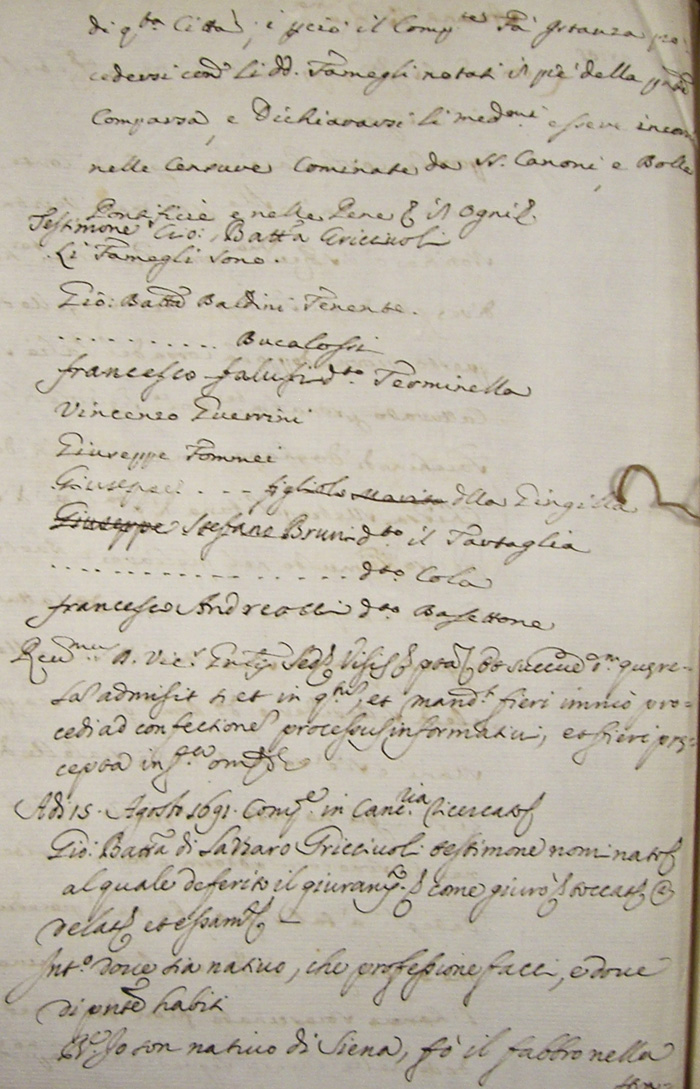 di q.ta Città, e perciò il Comp.te Fà Istanza pro
cedersi con.o li dd. Famegli notati à piè della pnte
Comparsa, e Dichiararsi li med.mi essere incorsi
nelle Censure Cominate da SS. Canoni, e Bolle
Pontificie e nelle Pene
Testimone Gio: Batta Gricciuoli
Li Famegli sono.
Gio: Batta Baldini Tenente.
. . . . . . . . . . Bucalossi
francesco falusi d.to Terminella
Vincenzo Guerrini
Giuseppe Tommei
Giuseppe . . . figliolo marito dlla Gingilla
Giuseppe Stefano Bruni d.to il Tartaglia
. . . . . . . . . . . . . . . . . . . d.to Cola
francesco Andreocci d.to Basettone
D. Vic.s visis quere=
la admisit et in q.tu, et mand.t fieri imniò pro=
cedi ad confectione processus informativi, et fieri pre=
cepta in
Adi 15. Agosto 1691. Comp.e in Canc.ria ricercato
Gio: Batta di Lazzaro Gricciuoli testimone nominato
al quale deferito il giuram.to come giurò toccat
delat et essam.
Int.o dove sia nativo, che professione facci, e dove
di pnte habiti
R. Io son nativo di Siena, fò il fabbro nella